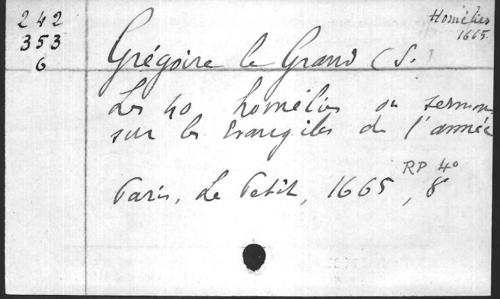 242
353
6
Homélies
1665.
Grégoire le Grand (S.)
Les 40 homélies ou sermons
sur les Evangiles de l'année
RP 40
Paris, Le Petit, 1665, 8°